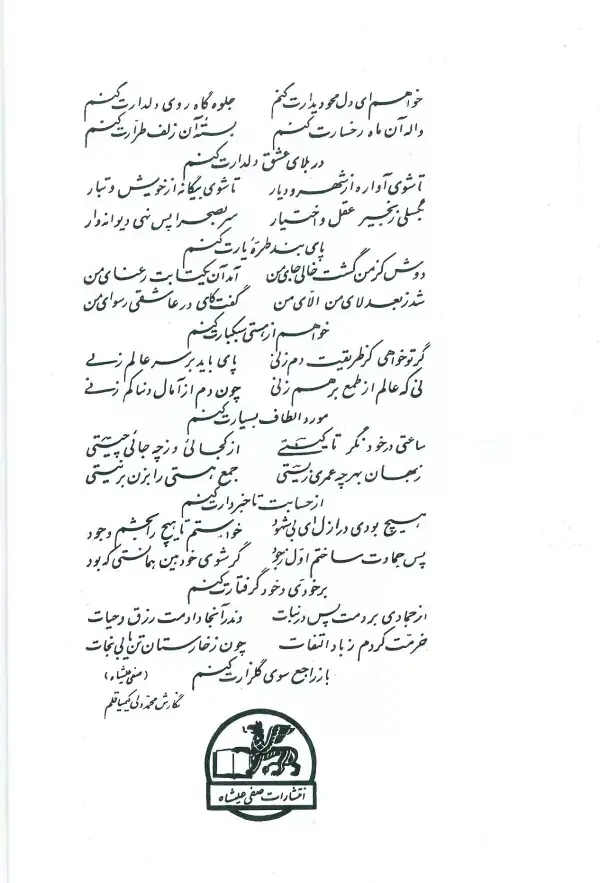 خواهم ای دل محو دیدارت کنم جلوه گاه روی دلدارت کنم
واله آن ماه رخسارت کنم بستهٔ آن زلف طرّارت کنم
در بلای عشق دلدارت کنم
تا شوی آواره از شهر و دیار تا شوی بیگانه از خویش و تبار
بگسلی زنجیر عقل و اختیار سر بصحرا پس نهی دیوانه وار
پای بند طرهٔ یارت کنم
دوش کز من گشت خالی جای من آمد آن یکتا بت رعنای من
شد ز بعد لای من الّای من گفت کای در عاشقی رسوای من
خواهم از هستی سبکبارت کنم
گر تو خواهی کز طریقت دم زنی پای باید بر سر عالم زنی
نی که عالم از طمع بر هم زنی چون دم از آمال دنیا کم زنی
مورد الطاف بسیارت کنم
ساعتی در خود نگر تا کیستی از کجائی وز چه جائی چیستی
در جهان بهر چه عمری زیستی جمع هستی را بزن بر نیستی
از حسابت تا خبردارت کنم
هیچ بودی در ازل ای بی شهود خواستم تا هیچ را بخشم وجود
پس جمادت ساختم اول ز جود گر شوی خودبین همانستی که بود
بر خودی خود گرفتارت کنم
از جمادی بردمت پس در نبات وندر آنجا دادمت رزق و حیات
خرمت کردم ز باد التفات چون ز خارستان تن یابی نجات
باز راجع سوی گلزارت کنم (صفی علیشاه)
نگارش محمد ولی کیمیاقلم
انتشارات صفی علیشاه